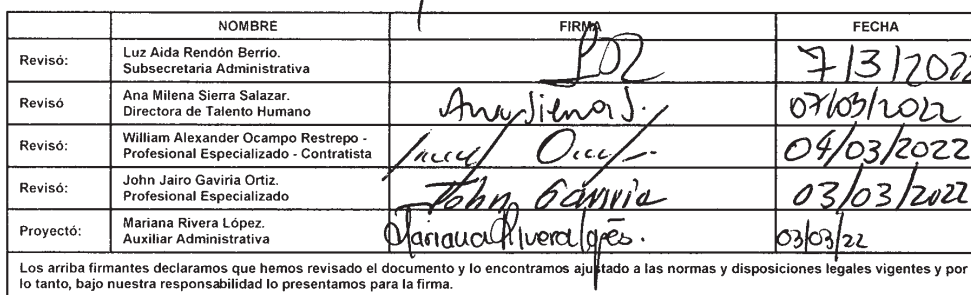 NOMBRE FIRMA FECHA
Revisó: Luz Aida Rendón Berrio.
Subsecretaria Administrativa
7/3/2022
Revisó Ana Milena Sierra Salazar.
Directora de Talento Humano
Ana Sierra S. 07/03/2022
Revisó: William Alexander Ocampo Restrepo -
Profesional Especializado - Contratista
04/03/2022
Revisó: John Jairo Gaviria Ortiz.
Profesional Especializado
John Gaviria 03/03/2022
Proyectó: Mariana Rivera López.
Auxiliar Administrativa
Mariana Rivera López. 03/03/22
Los arriba firmantes declaramos que hemos revisado el documento y lo encontramos ajustado a las normas y disposiciones legales vigentes y por
lo tanto, bajo nuestra responsabilidad lo presentamos para la firma.